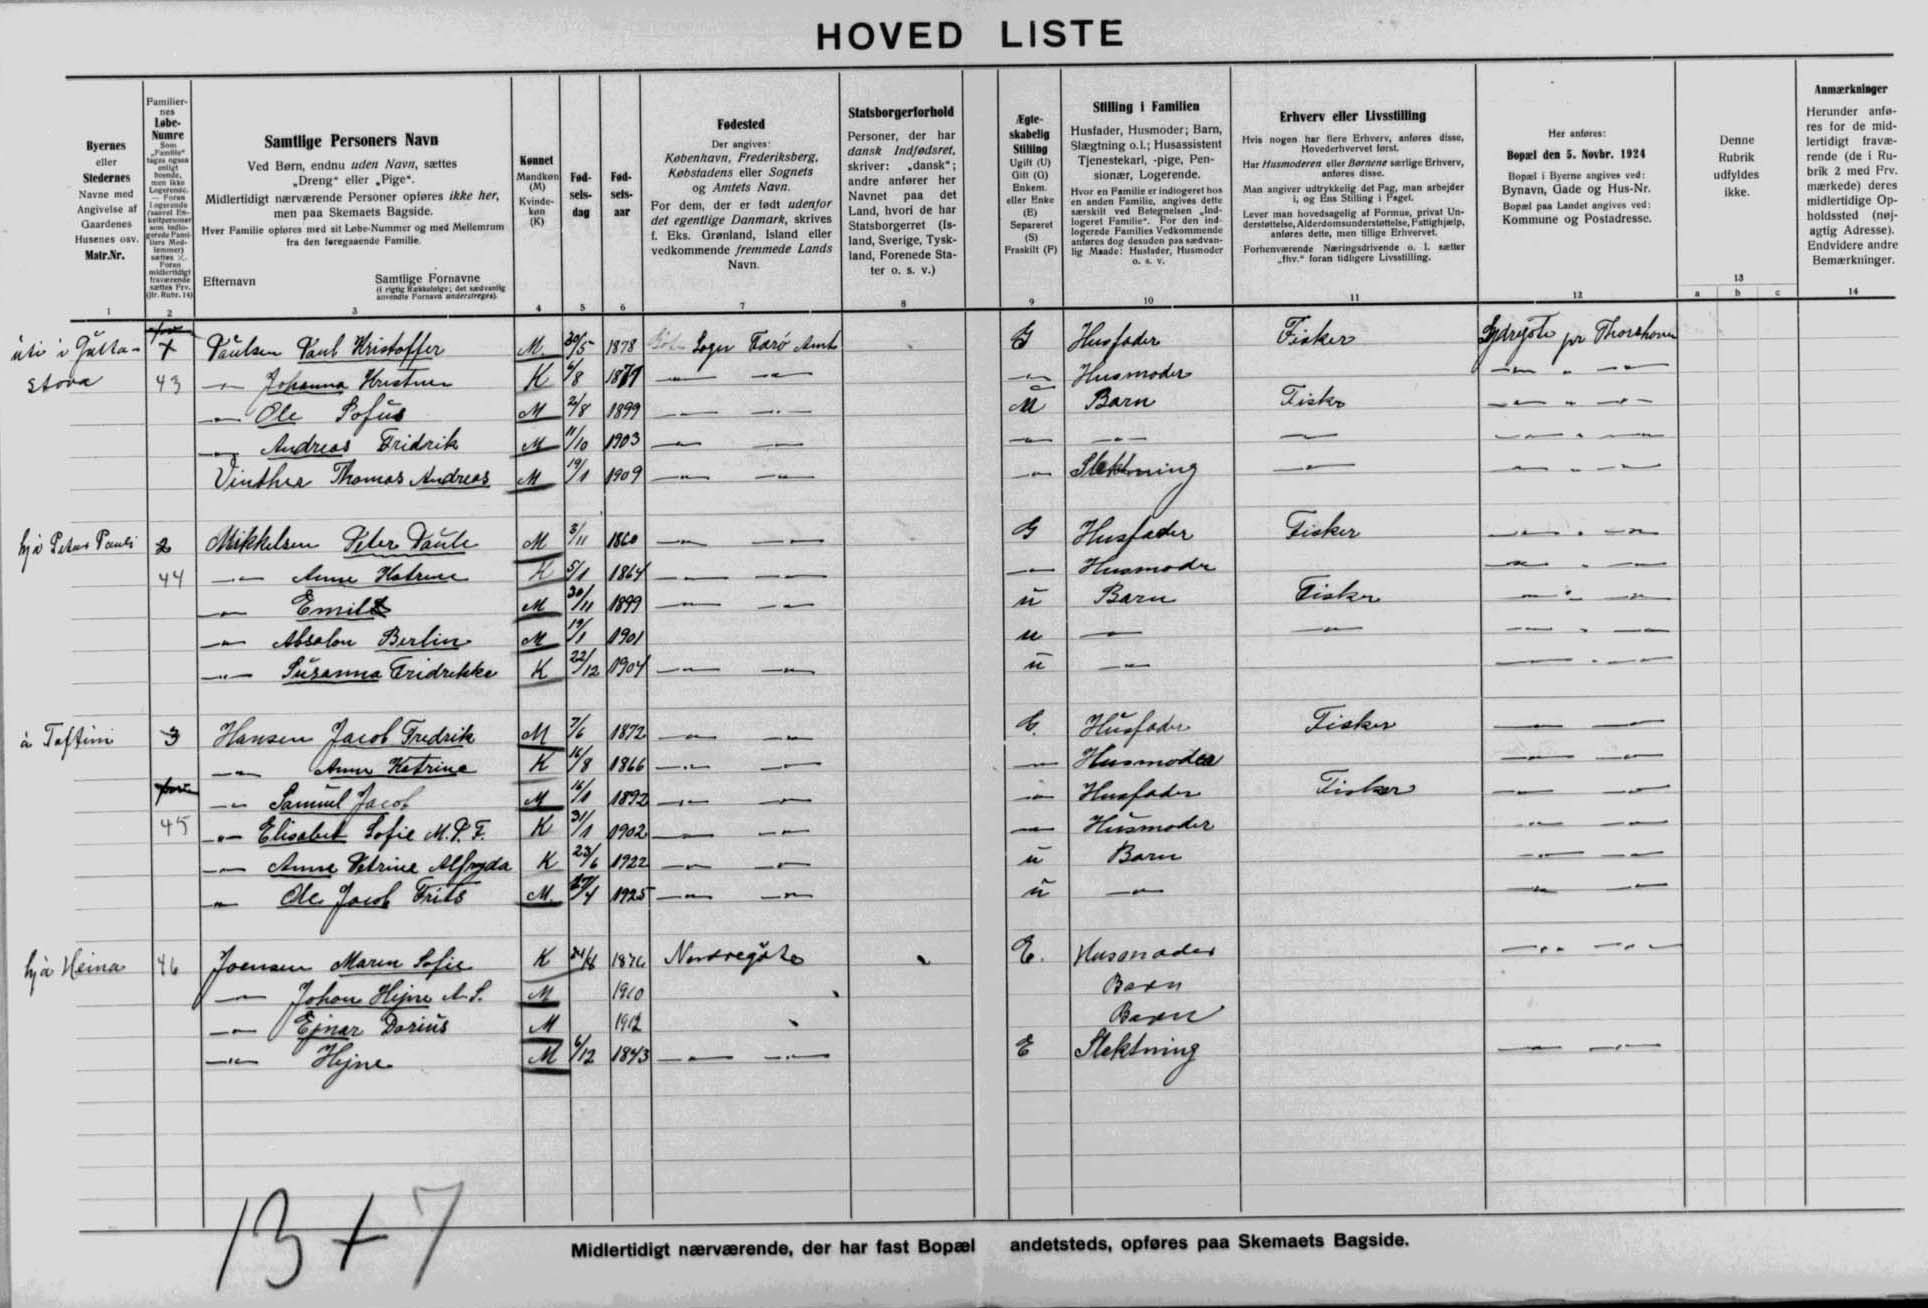 HOVED LISTE
Byernes
eller
Stedernes
Navne med
Angivelse af
Gaardenes
Husenes osv.
Matr.Nr.
1
Familier-
nes
Løbe-
Numre
Som
„Familie"
tages ogsaa
enligt
boende,
men ikke
Logerende.
— Foran
Logerende
sættes ×.
Foran
midlertidigt
fraværende
sættes Frv.
(jfr. Rubr. 14)
2
Samtlige Personers Navn
Ved Børn, endnu uden Navn, sættes
„Dreng" eller „Pige".
Midlertidigt nærværende Personer opføres ikke her,
men paa Skemaets Bagside.
Hver Familie opføres med sit Løbe-Nummer og med Mellemrum
fra den foregaaende Familie.
Efternavn Samtlige Fornavne
(i rigtig Rækkefølge; det sædvanlig
anvendte Fornavn understreges).
3
Kønnet
Mandkøn
(M)
Kvinde-
køn
(K)
4
Fød-
sels-
dag
5
Fød-
sels-
aar
6
Fødested
Der angives:
København, Frederiksberg,
Købstadens eller Sognets
og Amtets Navn.
For dem, der er født udenfor
det egentlige Danmark, skrives
f. Eks. Grønland, Island eller
vedkommende fremmede Lands
Navn.
7
Statsborgerforhold
Personer, der har
dansk Indfødsret,
skriver: „dansk";
andre anfører her
Navnet paa det
Land, hvori de har
Statsborgerret (Is-
land, Sverige, Tysk-
land, Forenede Sta-
ter o. s. v.)
8
Ægte-
skabelig
Stilling
Ugift (U)
Gift (G)
Enkem.
eller Enke
(E)
Separeret
(S)
Fraskilt (F)
9
Stilling i Familien
Husfader, Husmoder; Barn,
Slægtning o.l.; Husassistent
Tjenestekarl, -pige, Pen-
sionær, Logerende.
Hvor en Familie er indlogeret hos
en anden Familie, angives dette
særskilt ved Betegnelsen „Ind-
logeret Familie". For den ind-
logerede Families Vedkommende
anføres dog desuden paa sædvan-
lig Maade: Husfader, Husmoder
o. s. v.
10
Erhverv eller Livsstilling
Hvis nogen har flere Erhverv, anføres disse,
Hovederhvervet først.
Har Husmoderen eller Børnene særlige Erhverv,
anføres disse.
Man angiver udtrykkelig det Fag, man arbejder
i, og Ens Stilling i Faget.
Lever man hovedsagelig af Formue, privat Un-
derstøttelse, Alderdomsunderstøttelse, Fattighjælp,
anføres dette, men tillige Erhvervet.
Forhenværende Næringsdrivende o. l. sætter
„fhv." foran tidligere Livsstilling.
11
Her anføres:
Bopæl den 5. Novbr. 1924
Bopæl i Byerne angives ved:
Bynavn, Gade og Hus-Nr.
Bopæl paa Landet angives ved:
Kommune og Postadresse.
12
Denne
Rubrik
udfyldes
ikke.
13
a b c
Anmærkninger
Herunder anfø-
res for de mid-
lertidigt fravæ-
rende (de i Ru-
brik 2 med Frv.
mærkede) deres
midlertidige Op-
holdssted (nøj-
agtig Adresse).
Endvidere andre
Bemærkninger.
14
úti í Gutta- Paulsen Paul Kristoffer M 20/5 1878 Sogn Færø Amt G Husfader Fisker pr Thorshavn
stova 43 — Johanna Kristine K 6/8 1871 — — — Husmoder — " —
— Ole Sofus M 2/8 1899 — — Barn Fisker — " —
— Andreas Fridrik M 11/10 1903 — — — — — — " —
Vinther Thomas Andreas M 19/1 1909 — — — Slektning — — " —
hjá Petur Pauli 2 Mikkelsen Peter Paule M 3/11 1860 — — G Husfader Fisker — " —
44 — Anne Katrine K 5/1 1864 — — — Husmoder — " —
— Emil M 20/11 1899 — — U Barn Fisker — " —
— Absalon Berlin M 19/1 1901 U — — — " —
— Susanna Fridrikke K 22/12 1904 — — U — — " —
á Toftini 3 Hansen Jacob Fredrik M 7/6 1872 — — G Husfader Fisker — —
— Anne Katrine K 16/8 1866 — — — Husmoder — —
— Samuel Jacob M 16/1 1892 — — — Husfader Fisker — —
45 — Elisabet Sofie M. P. F. K 31/1 1902 — — — Husmoder — —
— Anne Petrine Alfryda K 23/6 1922 — — U Barn — —
— Ole Jacob Frits M 27/4 1925 — — U — — —
hjá Heina 46 Joensen Maren Sofie K 1876 Nordregøte E. Husmoder — —
— Johan Hejne A. S. M 1910 Barn
— Ejnar Dorius M 1912 Barn
— Hejne M 6/12 1843 — — E Slektning — —
13 + 7
Midlertidigt nærværende, der har fast Bopæl andetsteds, opføres paa Skemaets Bagside.